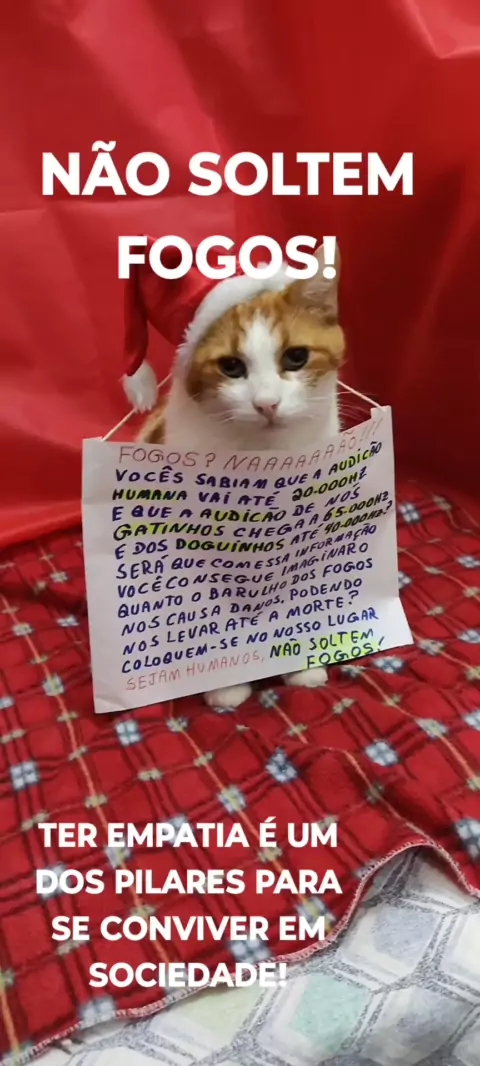 NÃO SOLTEM
FOGOS!
FOGOS? NAAAAAAÃO!!!
VOCÊS SABIAM QUE A AUDICÃO
HUMANA VAI ATÉ 20.000HZ
E QUE A AUDICÃO DE NÓS
GATINHOS CHEGA A 65.000HZ
E DOS DOGUINHOS ATÉ 40.000HZ?
SERÁ QUE COM ESSA INFORMAÇÃO
VOCÊ CONSEGUE IMAGINAR O
QUANTO O BARULHO DOS FOGOS
NOS CAUSA DANOS, PODENDO
NOS LEVAR ATÉ A MORTE?
COLOQUEM-SE NO NOSSO LUGAR
SEJAM HUMANOS, NÃO SOLTEM
FOGOS!
TER EMPATIA É UM
DOS PILARES PARA
SE CONVIVER EM
SOCIEDADE!